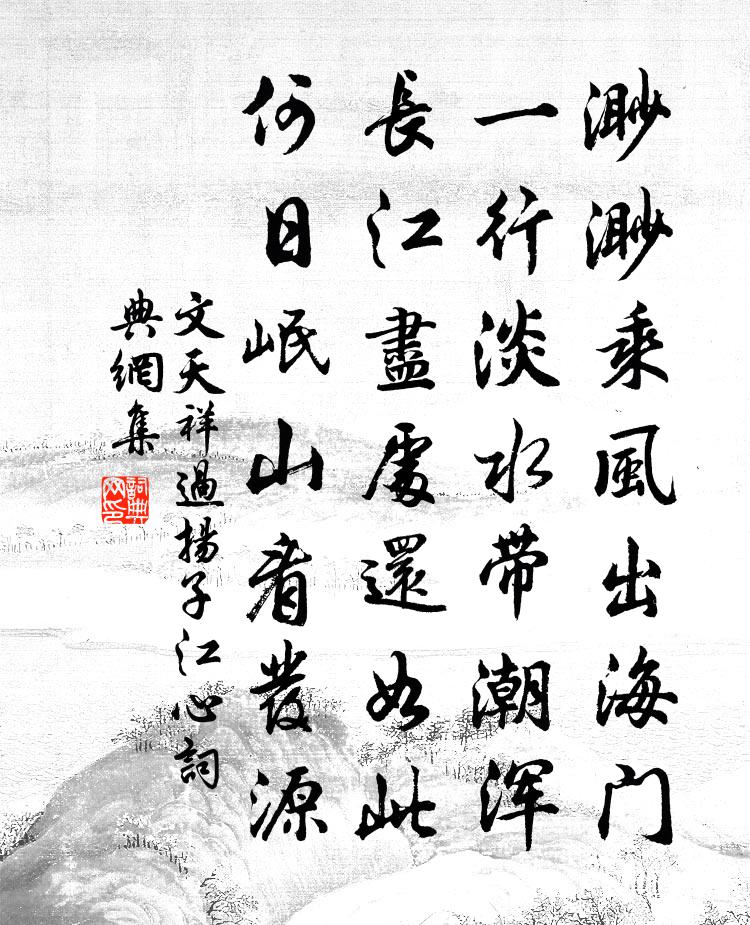 渺渺乘風出海門
一行淡水帶潮渾
長江盡處還如此
何日岷山看發源
文天祥過揚子江心詞
典網集
詞典
网印